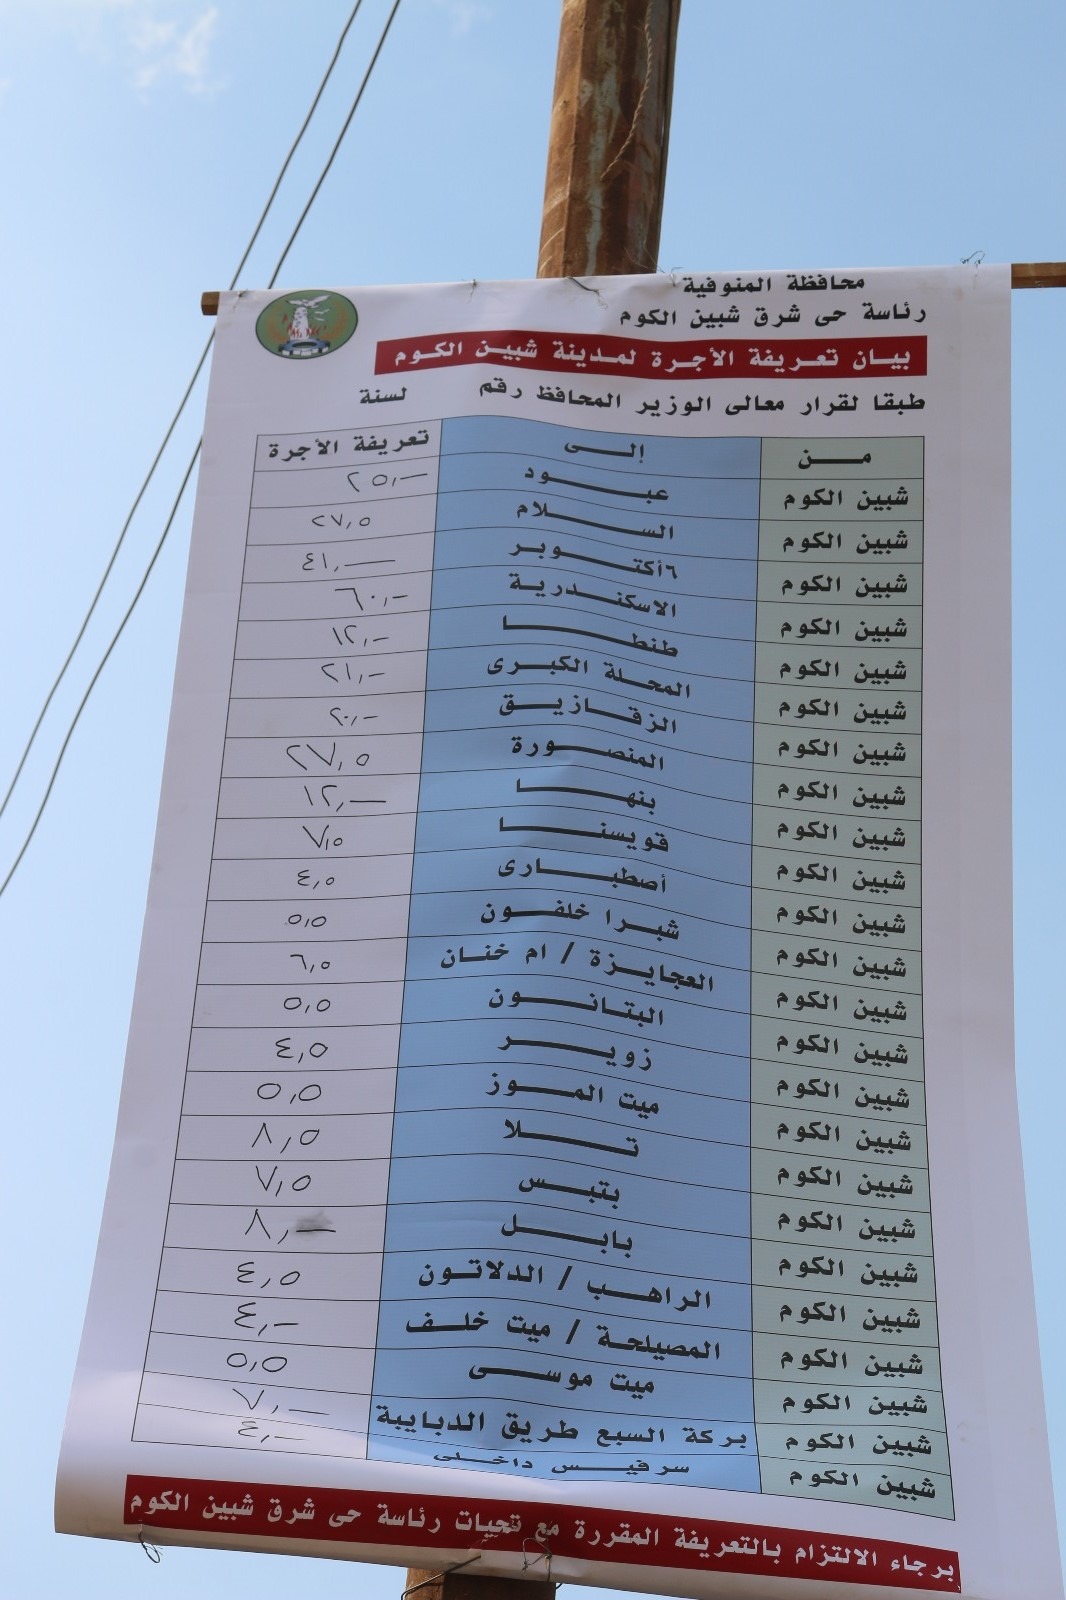 محافظة المنوفية
رئاسة حى شرق شبين الكوم
بيان تعريفة الأجرة لمدينة شبين الكوم
طبقا لقرار معالى الوزير المحافظ رقم لسنة
من إلى تعريفة الأجرة
شبين الكوم عبود ٢٥,-
شبين الكوم السلام ٢٧,٥
شبين الكوم ٦أكتوبر ٤١,-
شبين الكوم الاسكندرية ٦٠,-
شبين الكوم طنطا ١٢,-
شبين الكوم المحلة الكبرى ٢١,-
شبين الكوم الزقازيق ٢٠,-
شبين الكوم المنصورة ٢٧,٥
شبين الكوم بنها ١٢,-
شبين الكوم قويسنا ٧,٥
شبين الكوم أصطبارى ٤,٥
شبين الكوم شبرا خلفون ٥,٥
شبين الكوم العجايزة / ام خنان ٦,٥
شبين الكوم البتانون ٥,٥
شبين الكوم زوير ٤,٥
شبين الكوم ميت الموز ٥,٥
شبين الكوم تلا ٨,٥
شبين الكوم بتبس ٧,٥
شبين الكوم بابل ٨,-
شبين الكوم الراهب / الدلاتون ٤,٥
شبين الكوم المصيلحة / ميت خلف ٤,-
شبين الكوم ميت موسى ٥,٥
شبين الكوم بركة السبع طريق الدبايبة ٧,-
شبين الكوم سرفيس داخلى ٤,-
برجاء الالتزام بالتعريفة المقررة مع تحيات رئاسة حى شرق شبين الكوم